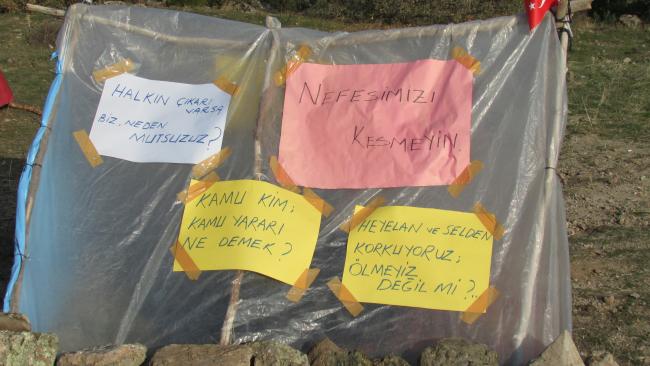 HALKIN ÇIKARI
VARSA
BİZ NEDEN
MUTSUZUZ?
NEFESİMİZİ
KESMEYİN
KAMU KİM;
KAMU YARARI
NE DEMEK?
HEYELAN VE SELDEN
KORKUYORUZ;
ÖLMEYİZ
DEĞİL Mİ?..